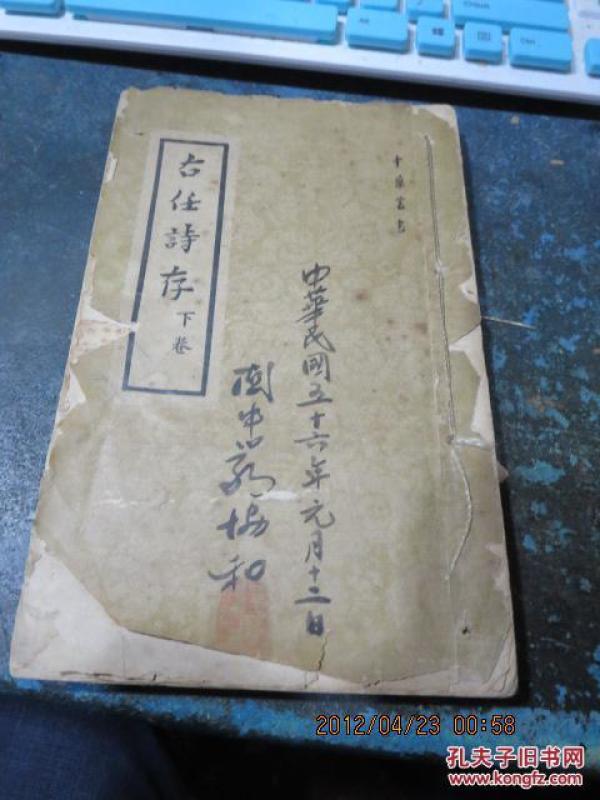 右任詩存
下卷
中華民國五十六年元月十二日
協和
2012/04/23 00:58
孔夫子旧书网
www.kongfz.com